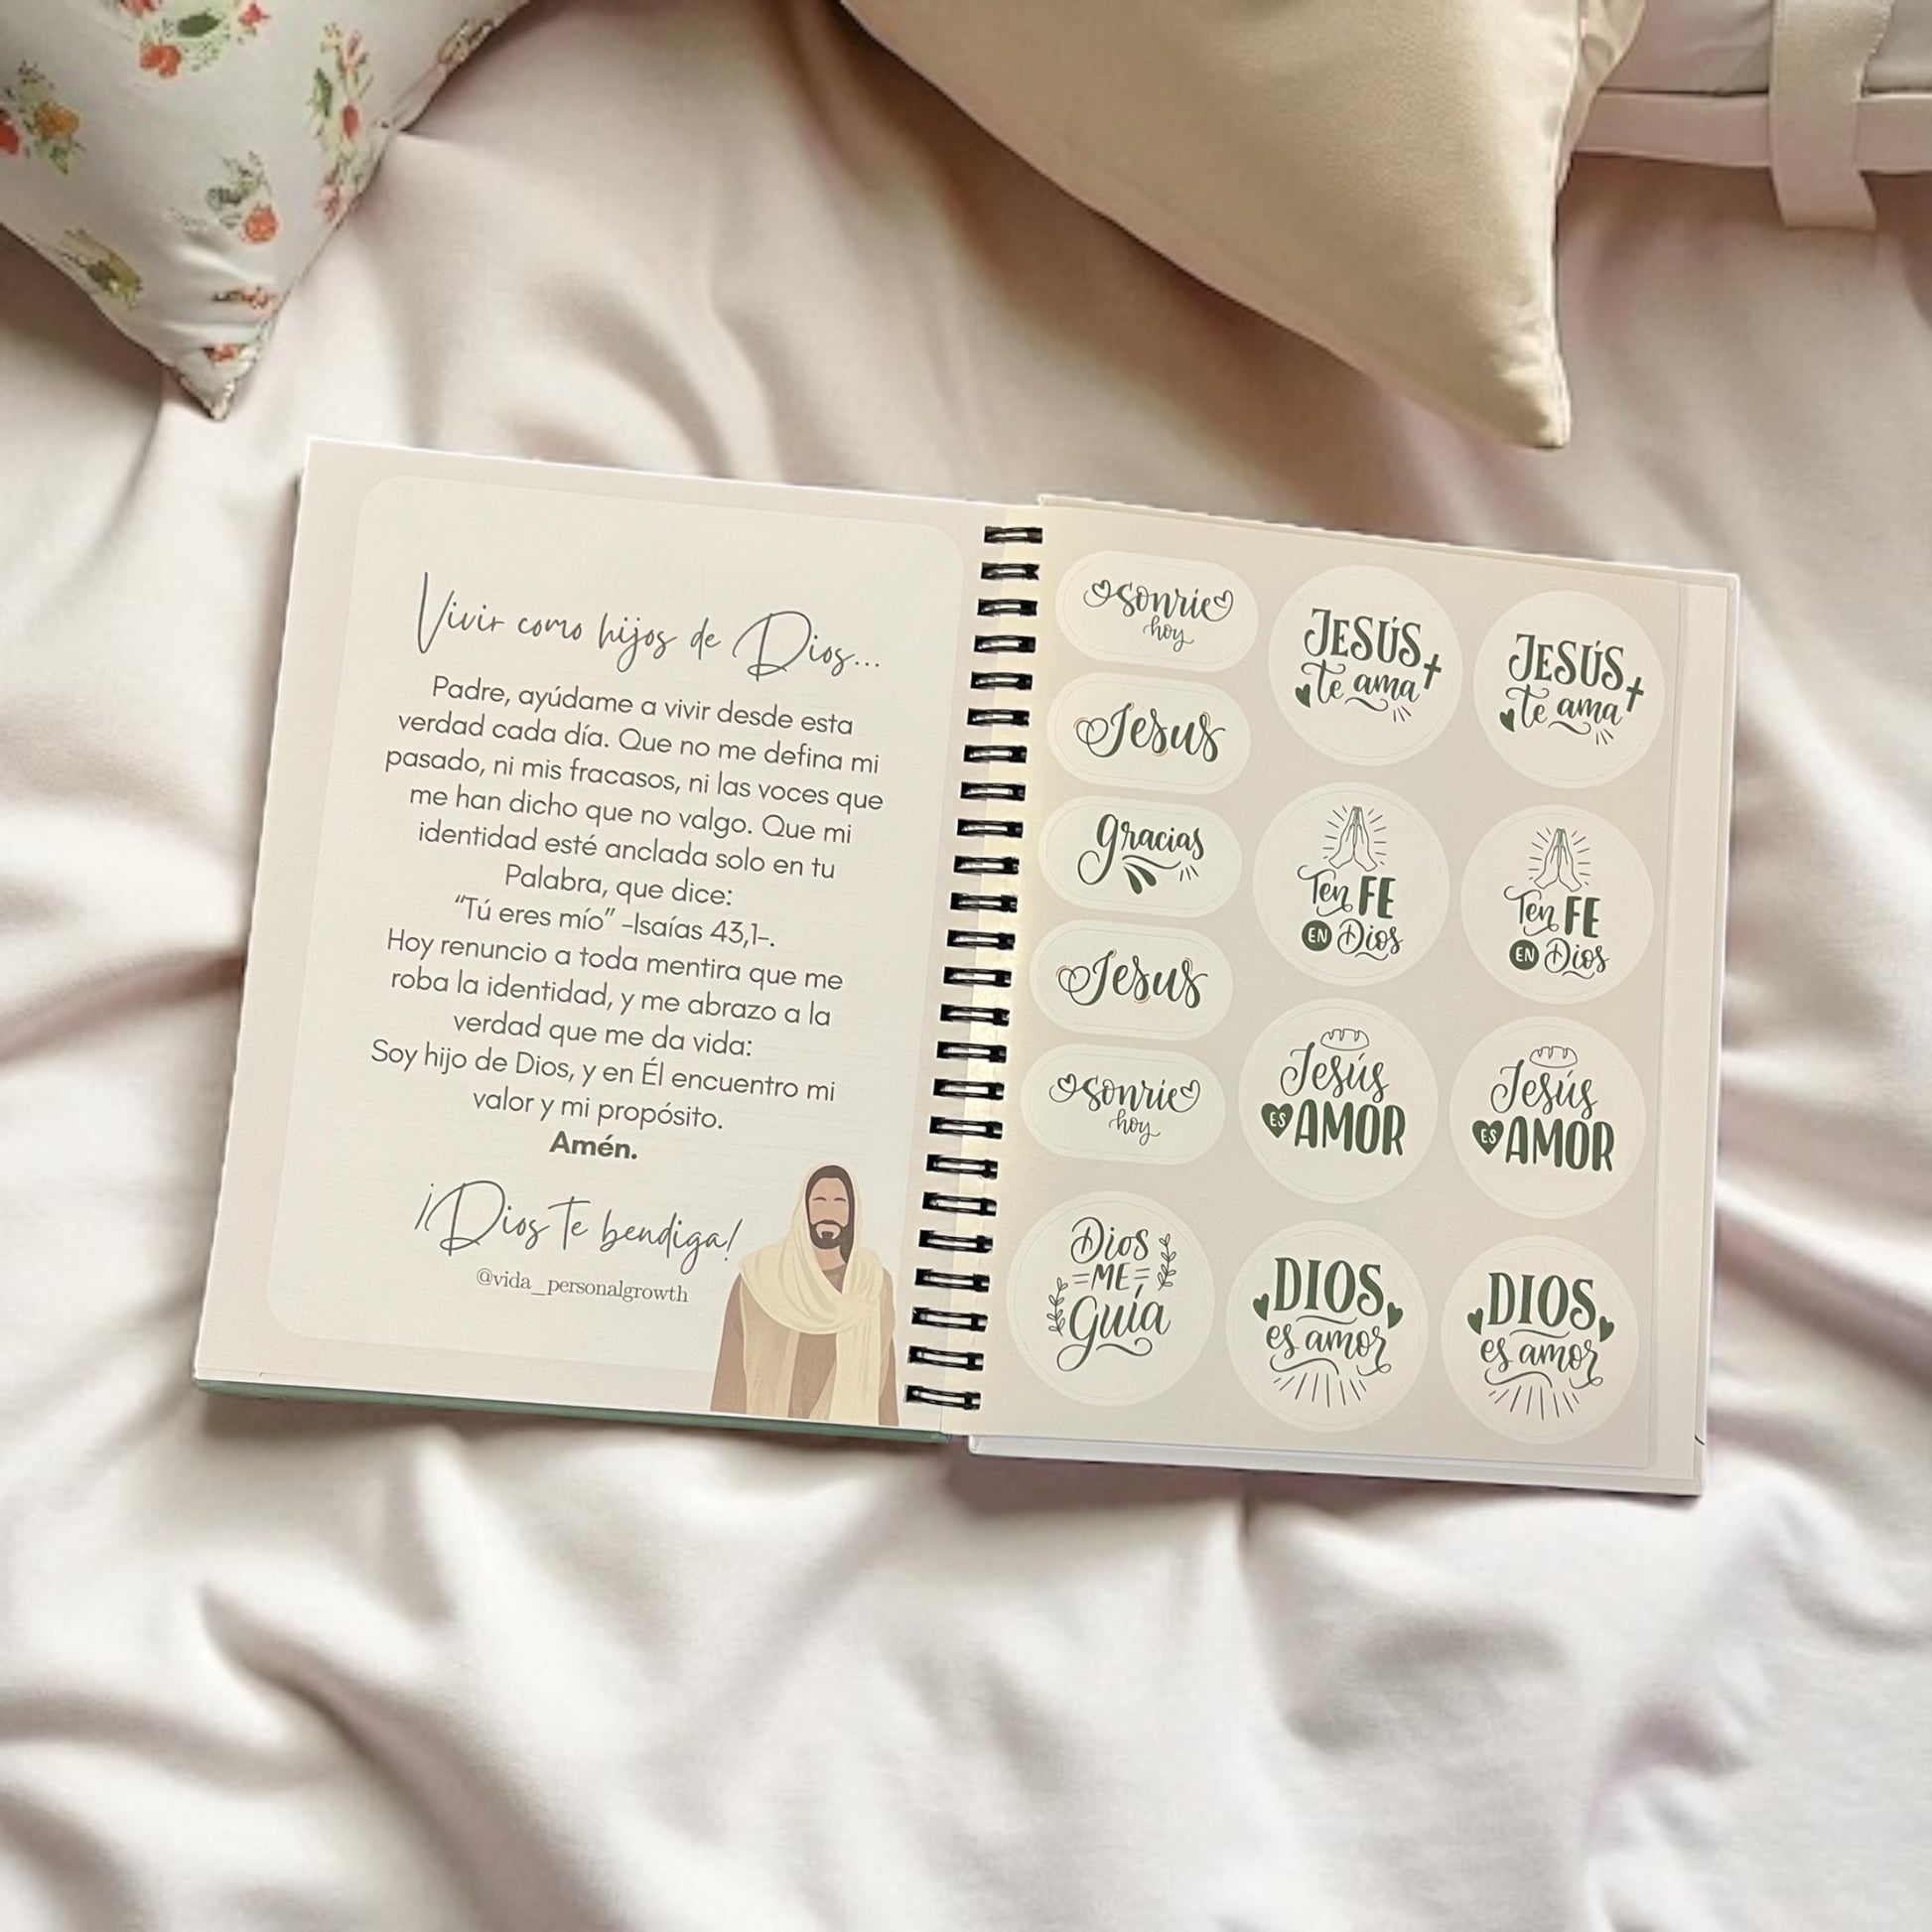 Vivir como hijos de Dios...
Padre, ayúdame a vivir desde esta
verdad cada día. Que no me defina mi
pasado, ni mis fracasos, ni las voces que
me han dicho que no valgo. Que mi
identidad esté anclada solo en tu
Palabra, que dice:
“Tú eres mío” –Isaías 43,1–.
Hoy renuncio a toda mentira que me
roba la identidad, y me abrazo a la
verdad que me da vida:
Soy hijo de Dios, y en Él encuentro mi
valor y mi propósito.
Amén.
¡Dios te bendiga!
@vida_personalgrowth
sonríe
hoy
Jesus
gracias
Jesus
sonríe
hoy
Dios
ME
Guía
JESÚS
te ama
Ten FE
EN Dios
Jesús
ES AMOR
DIOS
es amor
JESÚS
te ama
Ten FE
EN Dios
Jesús
ES AMOR
DIOS
es amor